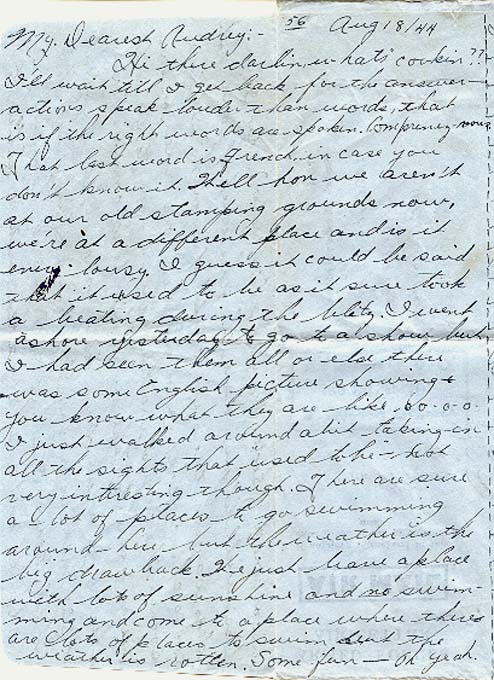 56 Aug 18/44
My Dearest Audrey:-
Hi there darlin, what's cookin??
I'll wait till I get back for the answer
actions speak louder than words, that
is if the right words are spoken. Comprenez-vous
That last word is French, in case you
don't know it. Well hon we aren't
at our old stamping grounds now,
we're at a different place and is it
ever lousy. I guess it could be said
that it used to be as it sure took
a beating during the blitz. I went
ashore yesterday to go to a show but
I had seen them all or else there
was some English picture showing &
you know what they are like so-o-o.
I just walked around a bit taking in
all the sights that used to be - not
very interesting though. There are sure
a lot of places to go swimming
around here but the weather is the
big drawback. We just leave a place
with lots of sunshine and no swim-
ming and come to a place where there
are lots of places to swim but the
weather is rotten. Some fun - oh yeah.